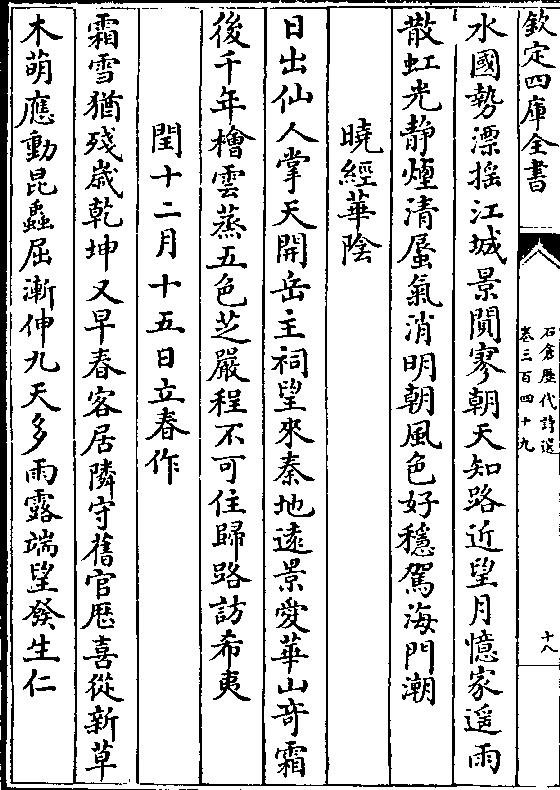 欽定四庫全書
石倉歷代詩選
卷三百四十九
十八
水國勢漂揺江城景閴寥朝天知路近望月憶家遥雨
散虹光静煙清蜃氣消明朝風色好穩駕海門潮
曉經華陰
日出仙人掌天開岳主祠望來秦地遠景愛華山竒霜
後千年檜雲蒸五色芝嚴程不可住歸路訪希夷
閏十二月十五日立春作
霜雪猶殘歳乾坤又早春客居隣守舊官厯喜從新草
木萌應動昆蟲屈漸伸九天多雨露端望發生仁